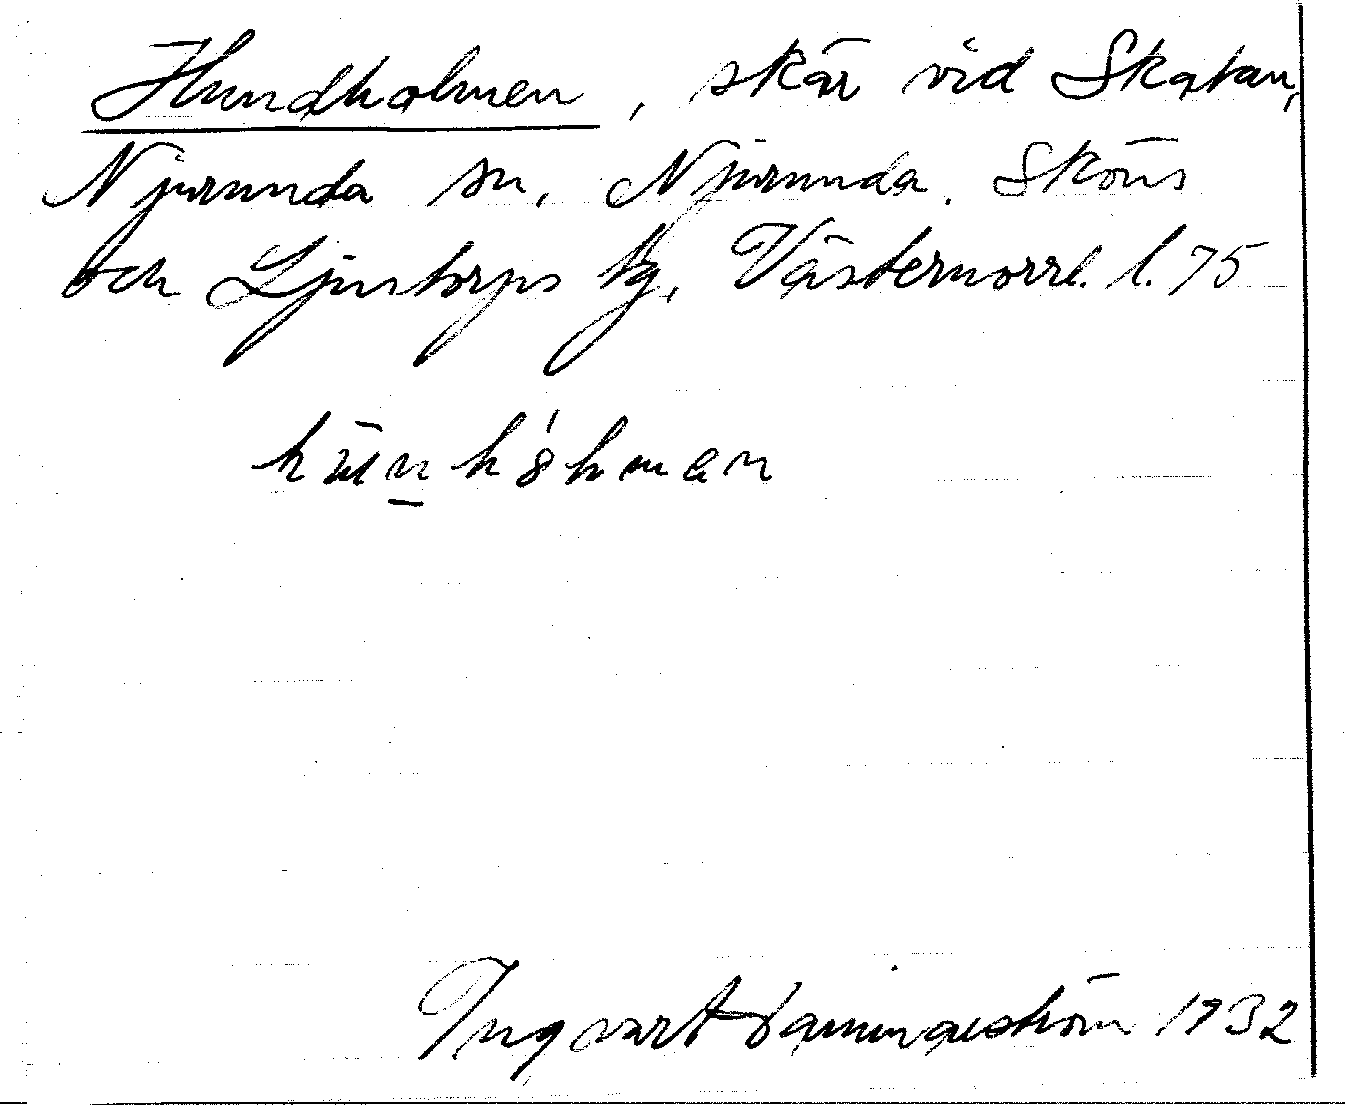 Hundholmen, skär vid Skatan,
Njurunda sn, Njurunda, Sköns
och Ljustorps tg, Västernorrl. l. 75
Ingvart 1932